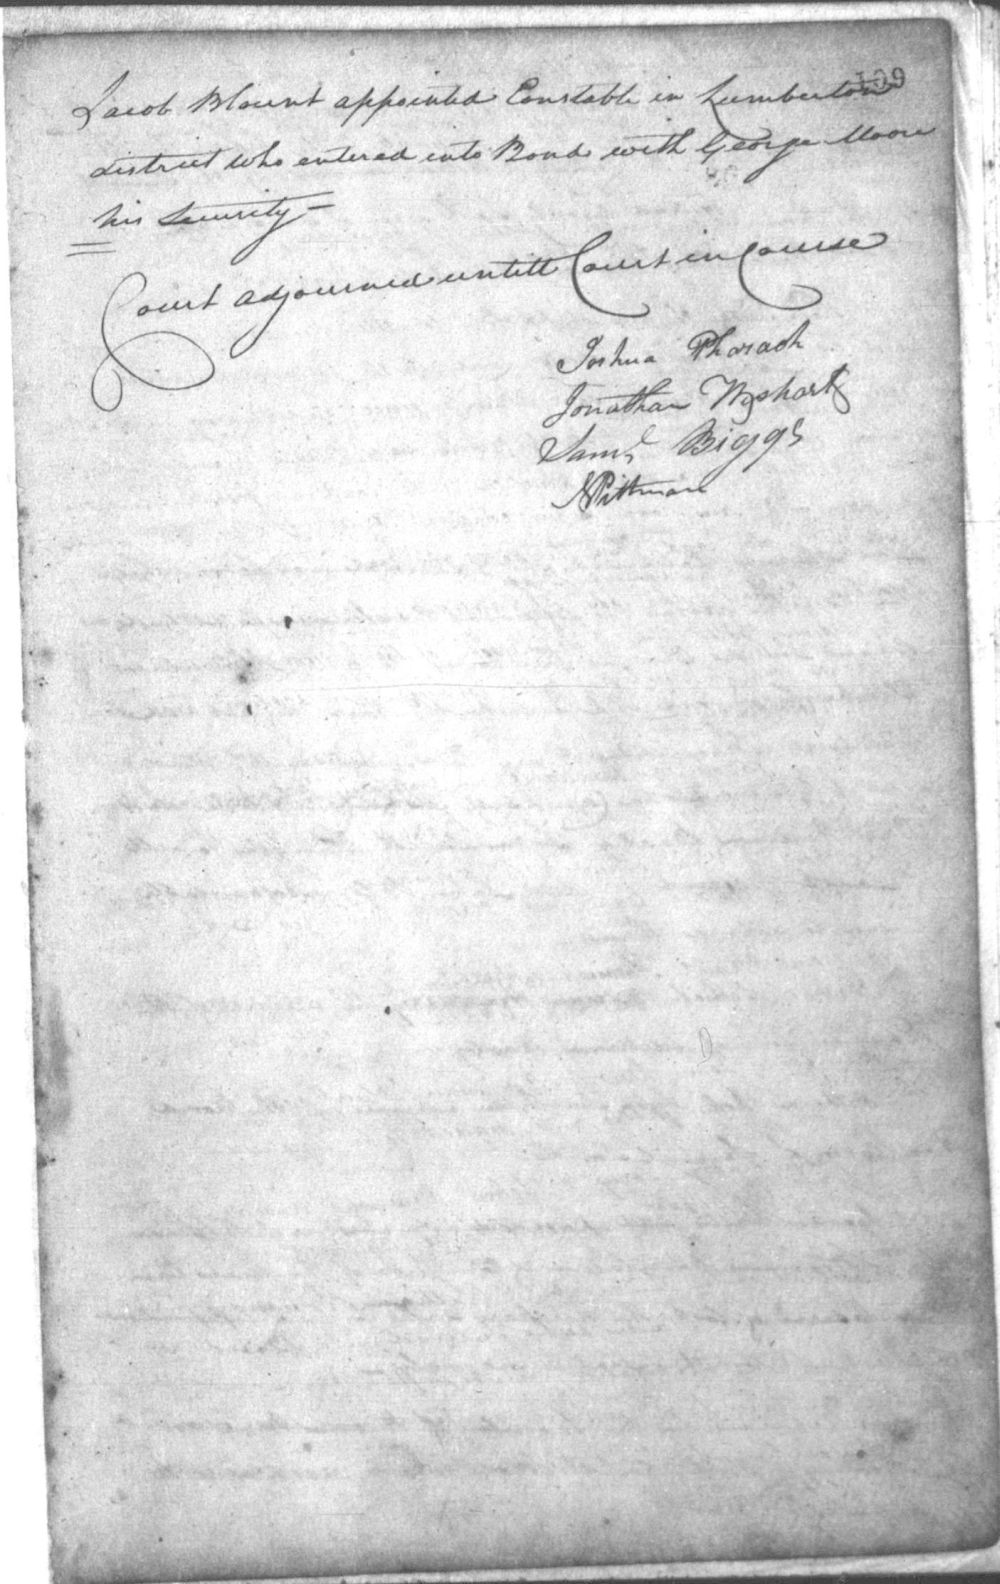 109
Jacob Blount appointed Constable in Lumberton
district who entered into Bond with George Moore
his Security
Court adjourned untill Court in Course
Joshua Pharaoh
Jonathan Wishart
Saml Biggs
N Pittman